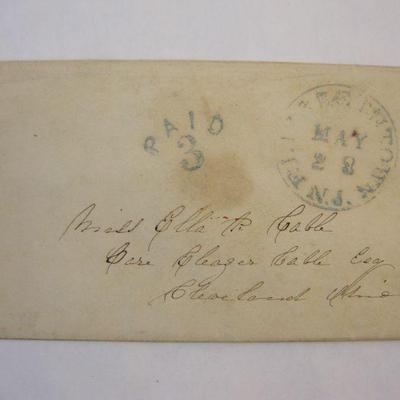 PAID
3
MAY
28
N.J.
Miss Ella Cable
Care Eleazer Cable Esq
Cleveland Ohio